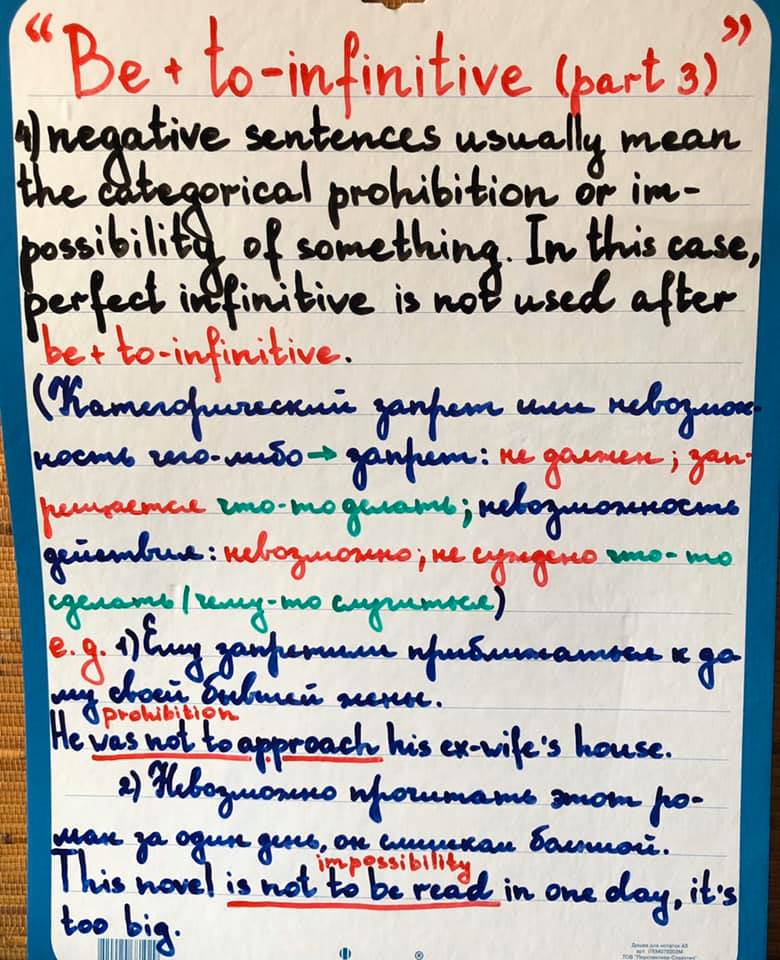 “Be + to-infinitive (part 3)”
4) negative sentences usually mean
the categorical prohibition or im-
possibility of something. In this case,
perfect infinitive is not used after
be + to-infinitive.
(Категорический запрет или невозмож-
ность чего-либо → запрет: не должен; зап-
рещается что-то делать; невозможность
действия: невозможно; не суждено что-то
сделать / чему-то случиться)
e.g. 1) Ему запретили приближаться к до
му своей бывшей жены.
prohibition
He was not to approach his ex-wife's house.
2) Невозможно прочитать этот ро-
ман за один день, он слишком большой.
impossibility
This novel is not to be read in one day, it's
too big.
Дошка для нотаток А3